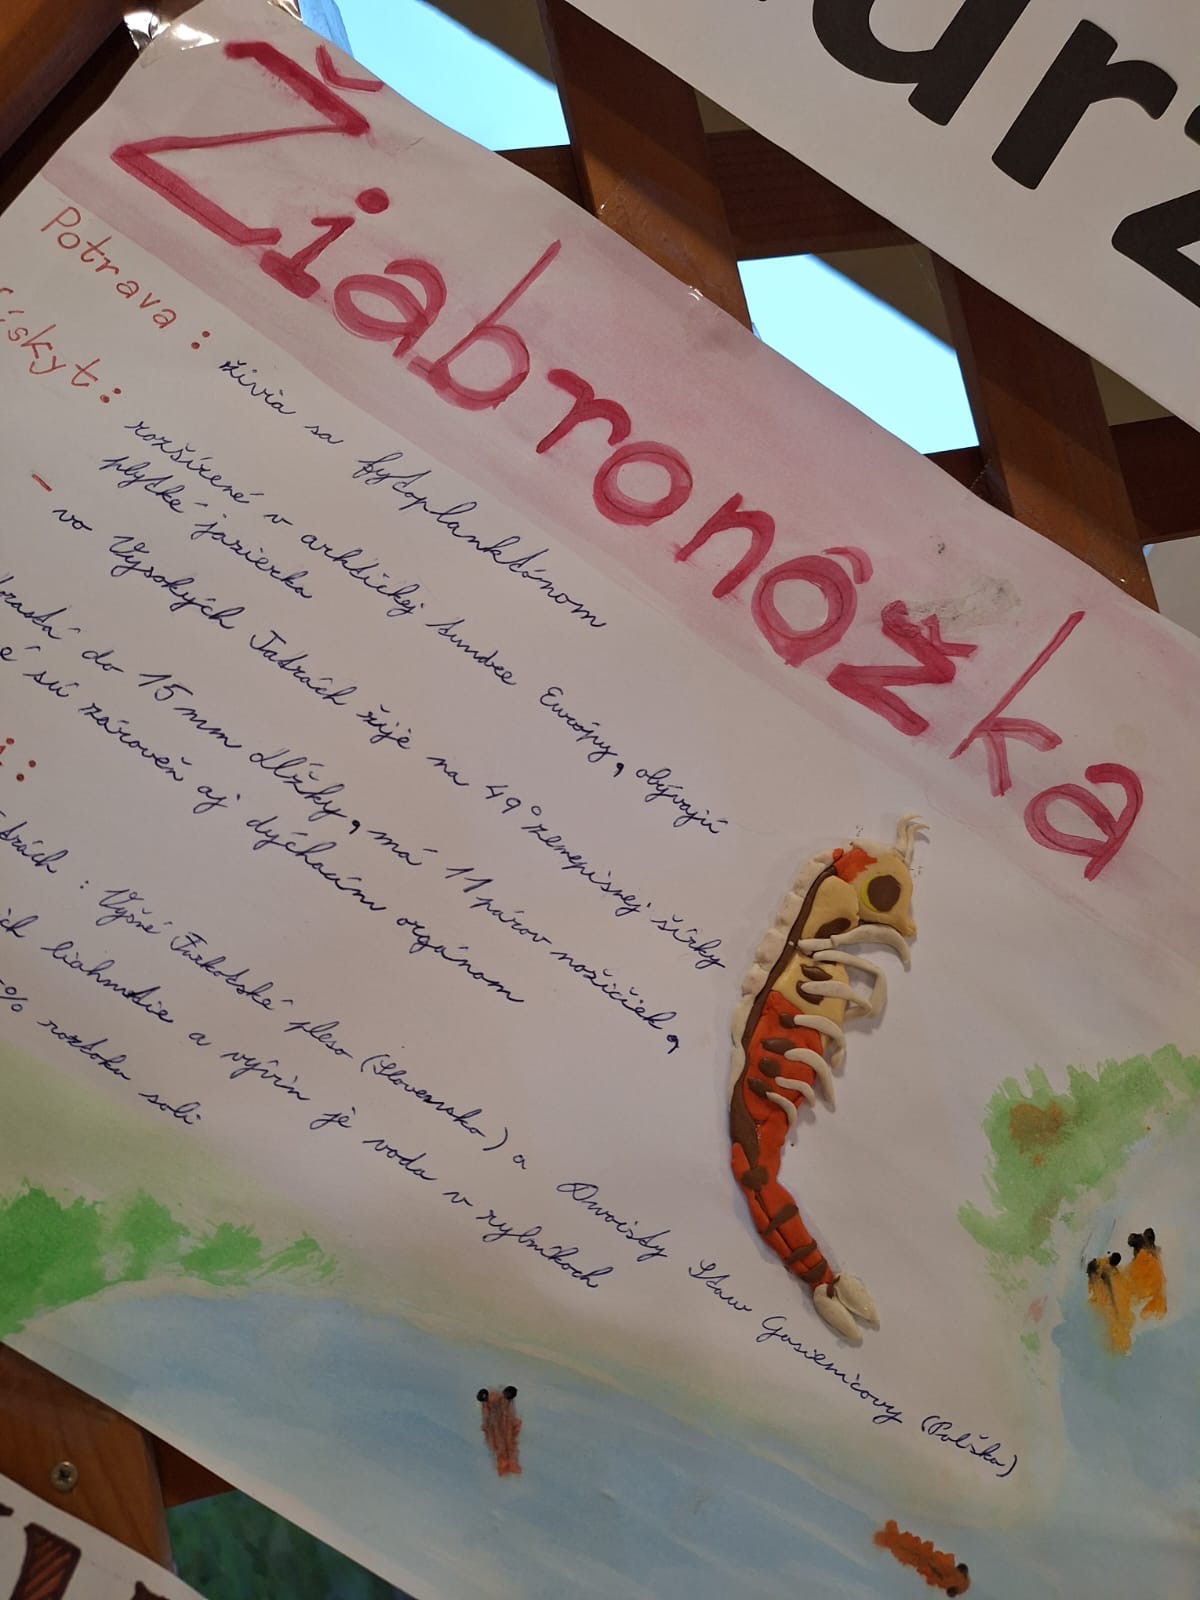 urz
Žiabronôžka
Potrava: živia sa fytoplanktónom
skyt: rozšírené v arktickej tundre Európy, obývajú
plytké jazierka
- vo Vysokých Tatrách žije na 49° zemepisnej šírky
do 15 mm dĺžky, má 11 párov nožičiek,
é sú zároveň aj dýchacím orgánom
i:
: Vyšné Furkotské pleso (Slovensko) a Dwoisty Staw Gasienicowy (Polsko)
liahnutie a vývin je voda v rybníkoch
% roztoku soli